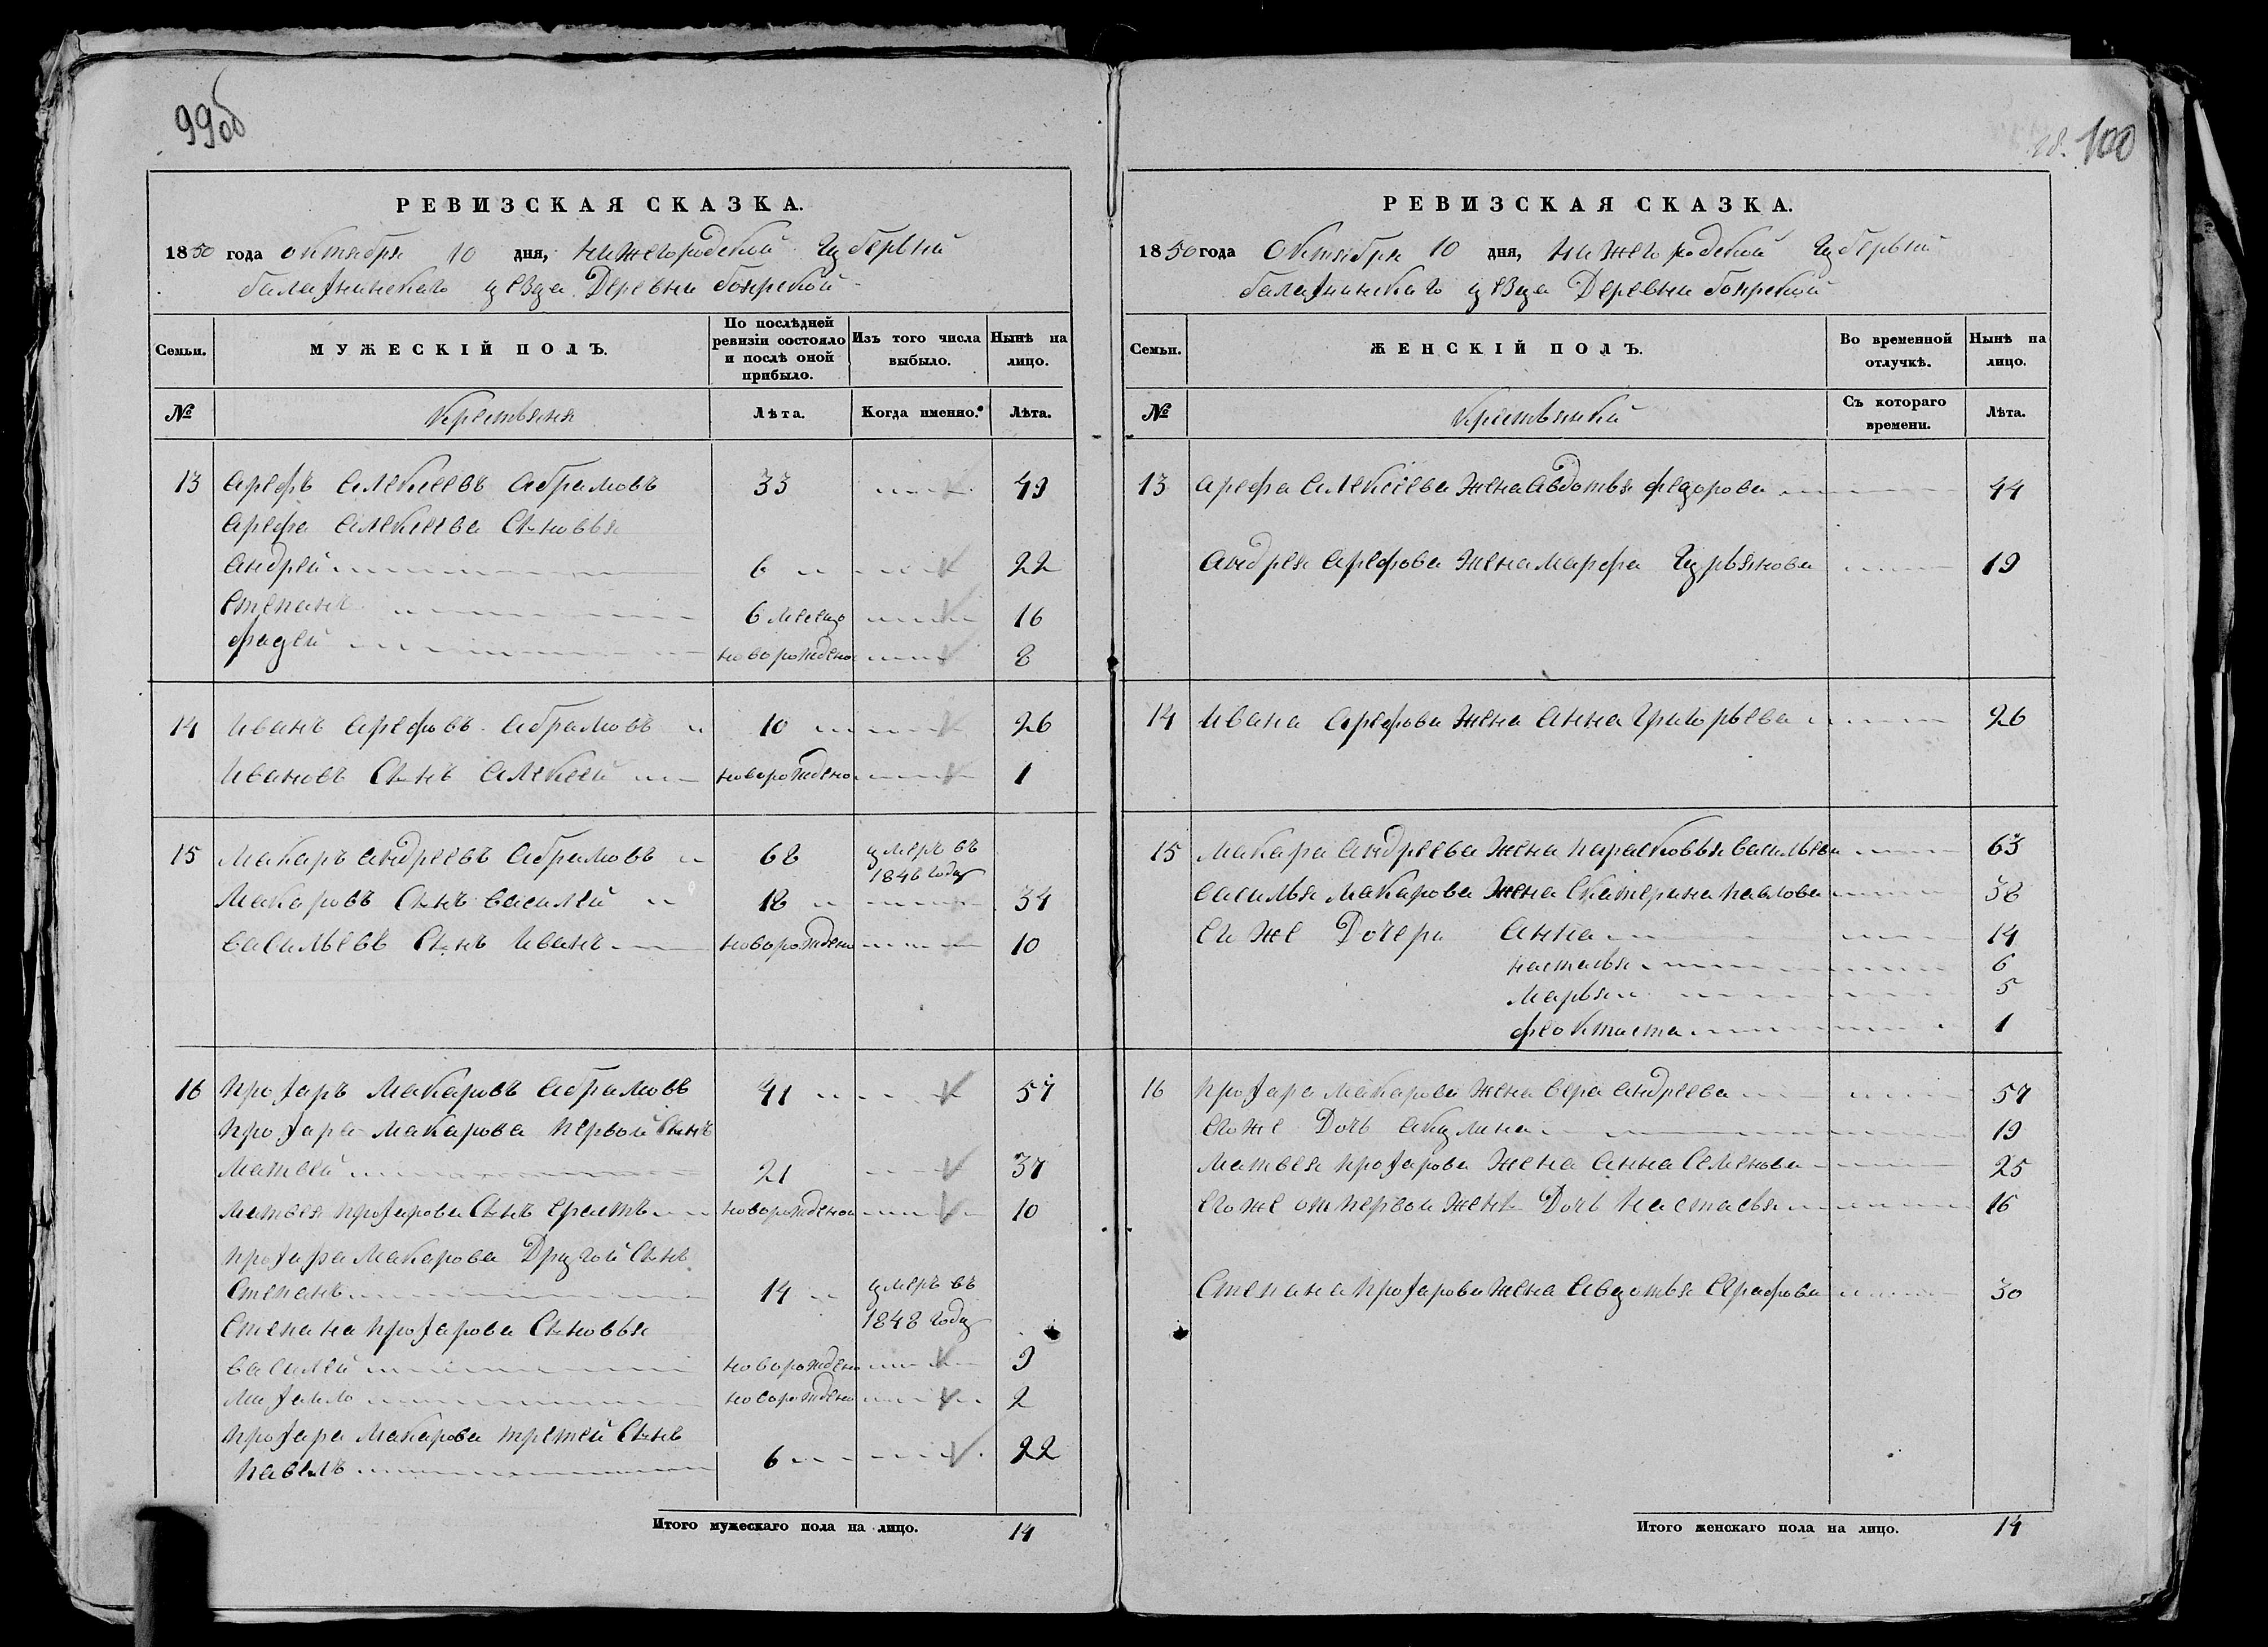 99об
РЕВИЗСКАЯ СКАЗКА.
1850 года октября 10 дня, нижегородской губернии
балахнинскаго уезда Деревни боярской
Семьи. МУЖЕСКІЙ ПОЛЪ. По послѣдней ревизіи состояло и послѣ оной прибыло. Изъ того числа выбыло. Нынѣ на лицо.
№ Крестьяня Лѣта. Когда именно. Лѣта.
13 Арефъ Алексеевъ Абрамовъ 33 49
Арефа Алексеева Сыновья
Андрей 6 22
Степанъ 6 месецо 16
фадей новорождено 8
14 Иванъ Арефовъ Абрамовъ 10 26
Ивановъ Сынъ Алексей новорождено 1
15 Макаръ Андреевъ Абрамовъ 68 умеръ въ 1846 году
Макаровъ Сынъ Василей 18 34
Васильевъ Сынъ Иванъ новорождено 10
16 Прохаръ Макаровъ Абрамовъ 41 57
Прохара Макарова Первой Сынъ
Матвей 21 37
Матвея Прохарова Сынъ Ерастъ новорожденой 10
Прохара Макарова Другой Сынъ
Степанъ 14 умеръ въ 1848 году
Степана Прохарова Сыновья
Василей новорождено 9
Михаило новорождено 2
Прохара Макарова третей Сынъ
Павелъ 6 22
Итого мужескаго пола на лицо. 14
100
РЕВИЗСКАЯ СКАЗКА.
1850 года Октября 10 дня, нижегородской губернии
балахнинскаго уезда Деревни боярской
Семьи. ЖЕНСКІЙ ПОЛЪ. Во временной отлучкѣ. Нынѣ на лицо.
№ Крестьянки Съ котораго времени. Лѣта.
13 Арефа Алексеева Жена Авдотья федорова 44
Андрея Арефова Жена марфа Гурьянова 19
14 Ивана Арефова Жена Анна Григорьева 26
15 Макара Андреева Жена парасковья Васильева 63
Василья Макарова Жена Екатерина павлова 38
Ево же Дочери Анна 14
настасья 6
Марья 5
феоктиста 1
16 Прохара Макарова жена Вера Андреева 57
Ево же Дочь Акулина 19
Матвея Прохарова Жена Анна Семенова 25
Ево же от первой жены Дочь Настасья 16
Степана Прохарова жена Авдотья Ефрафова 30
Итого женскаго пола на лицо. 14